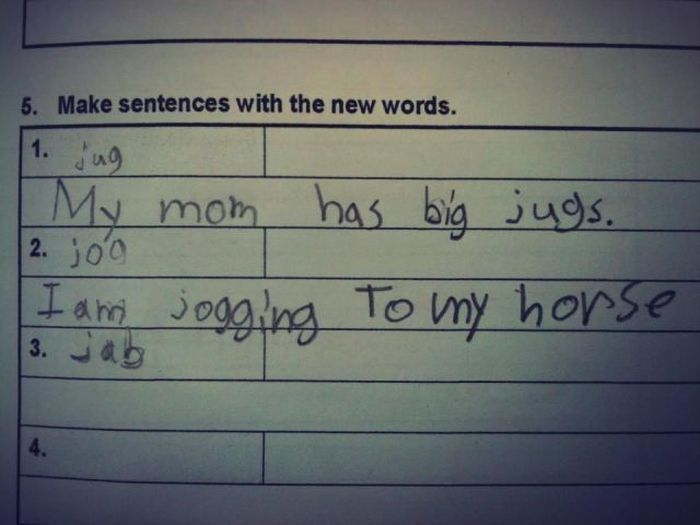 5. Make sentences with the new words.
1. jug
My mom has big jugs.
2. jog
I am jogging To my horse
3. jab
4.